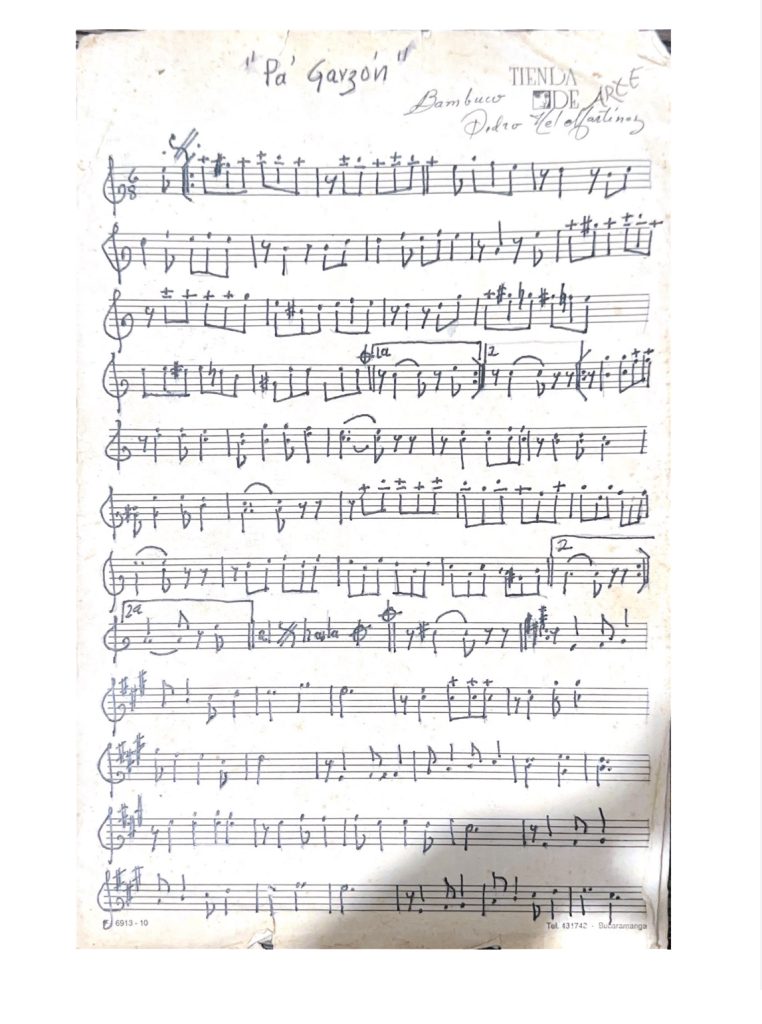 "Pa' Garzón"
TIENDA
DE ARTE
Bambuco
Pedro Nel Martínez
6
8
1a
2
2
2a
al hasta
6913 - 10
Tel. 431742 - Bucaramanga